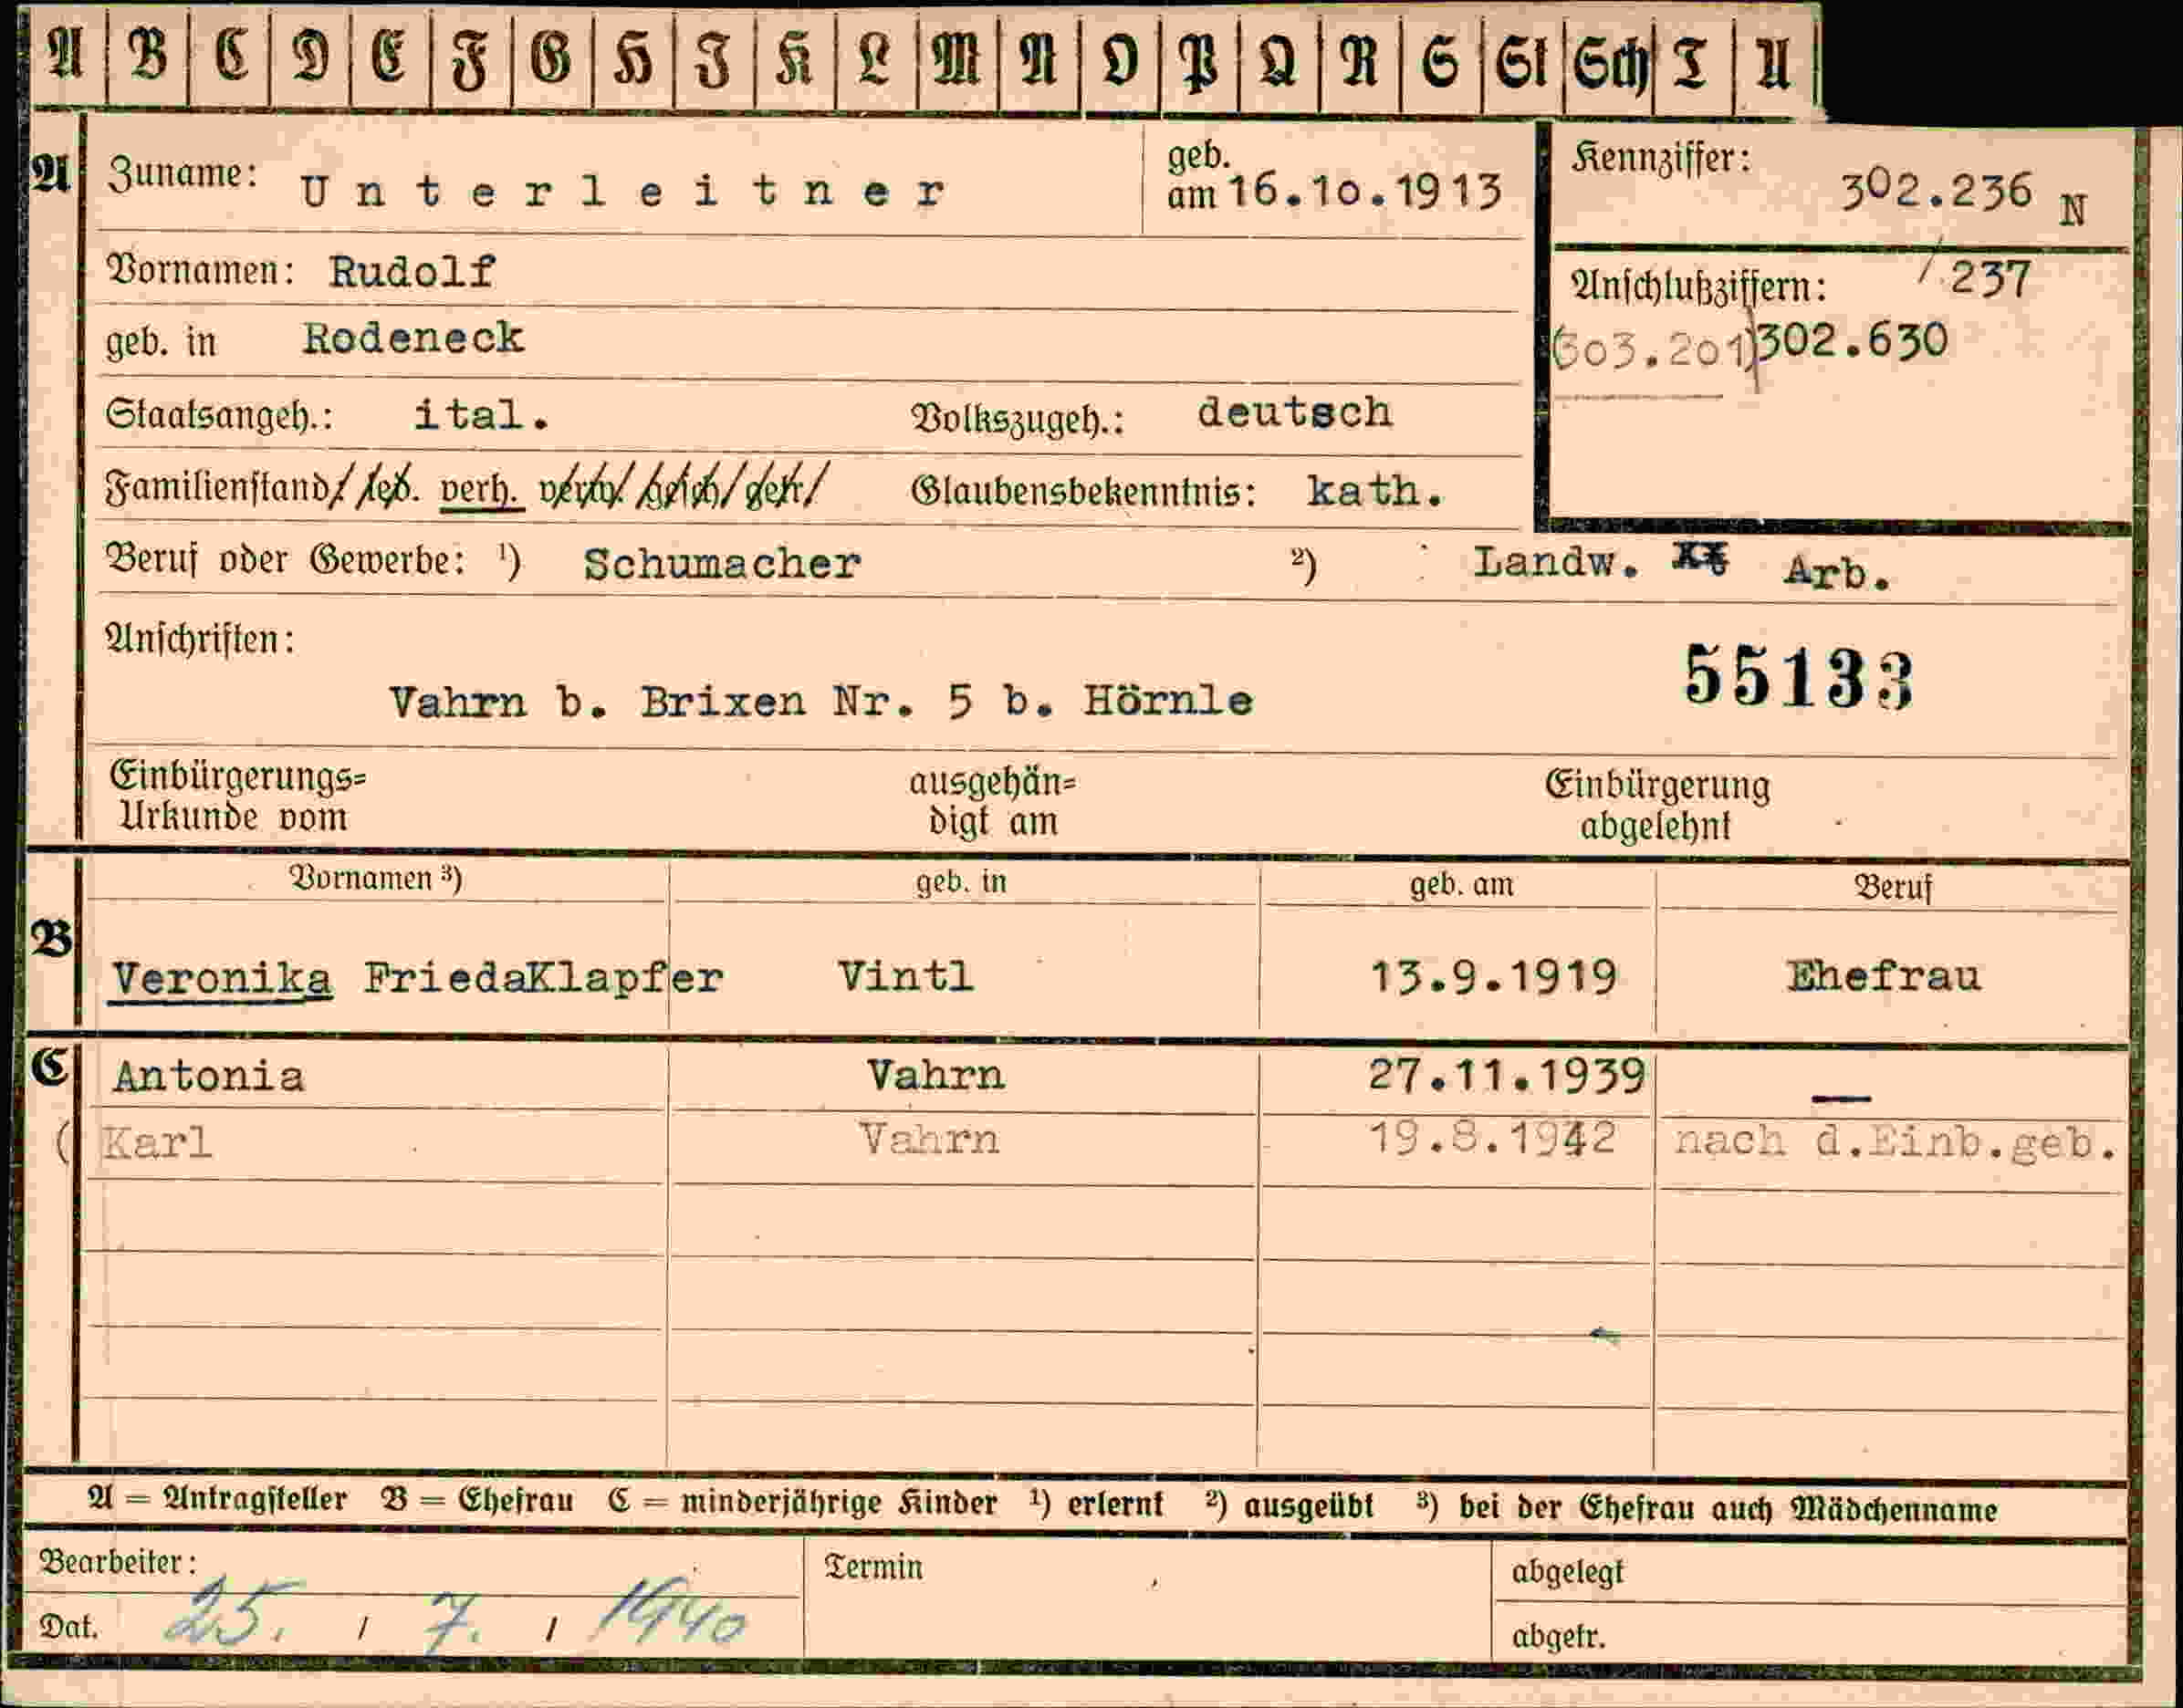 A B C D E F G H I K L M N O P Q R S St Sch T U
A Zuname: Unterleitner geb. am 16.10.1913 Kennziffer: 302.236 N
Vornamen: Rudolf Anschlußziffern: / 237
geb. in Rodeneck (303.201) 302.630
Staatsangeh.: ital. Volkszugeh.: deutsch
Familienstand led. verh. verw. gesch. getr. Glaubensbekenntnis: kath.
Beruf oder Gewerbe: ¹) Schumacher ²) Landw. Arb.
Anschriften:
55133
Vahrn b. Brixen Nr. 5 b. Hörnle
Einbürgerungs= ausgehän= Einbürgerung
Urkunde vom digt am abgelehnt
Vornamen ³) geb. in geb. am Beruf
B Veronika FriedaKlapfer Vintl 13.9.1919 Ehefrau
C Antonia Vahrn 27.11.1939 —
( Karl Vahrn 19.8.1942 nach d.Einb.geb.
A = Antragsteller B = Ehefrau C = minderjährige Kinder ¹) erlernt ²) ausgeübt ³) bei der Ehefrau auch Mädchenname
Bearbeiter: Termin abgelegt
Dat. 25. / 7. / 1940 abgetr.